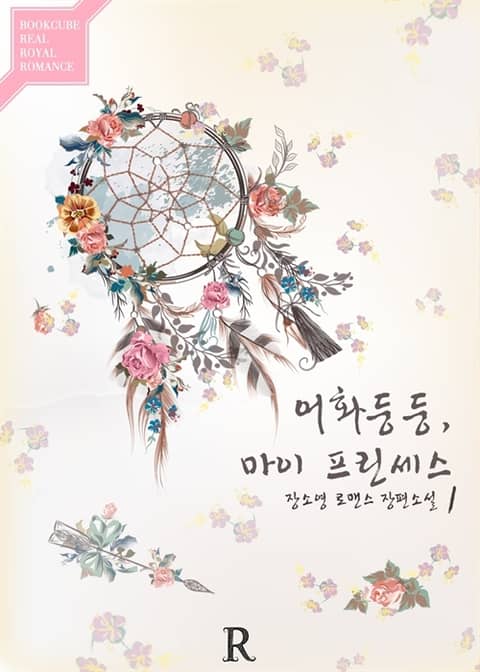 BOOKCUBE
REAL
ROYAL
ROMANCE
어화둥둥,
마이 프린세스
장소영 로맨스 장편소설 1
R